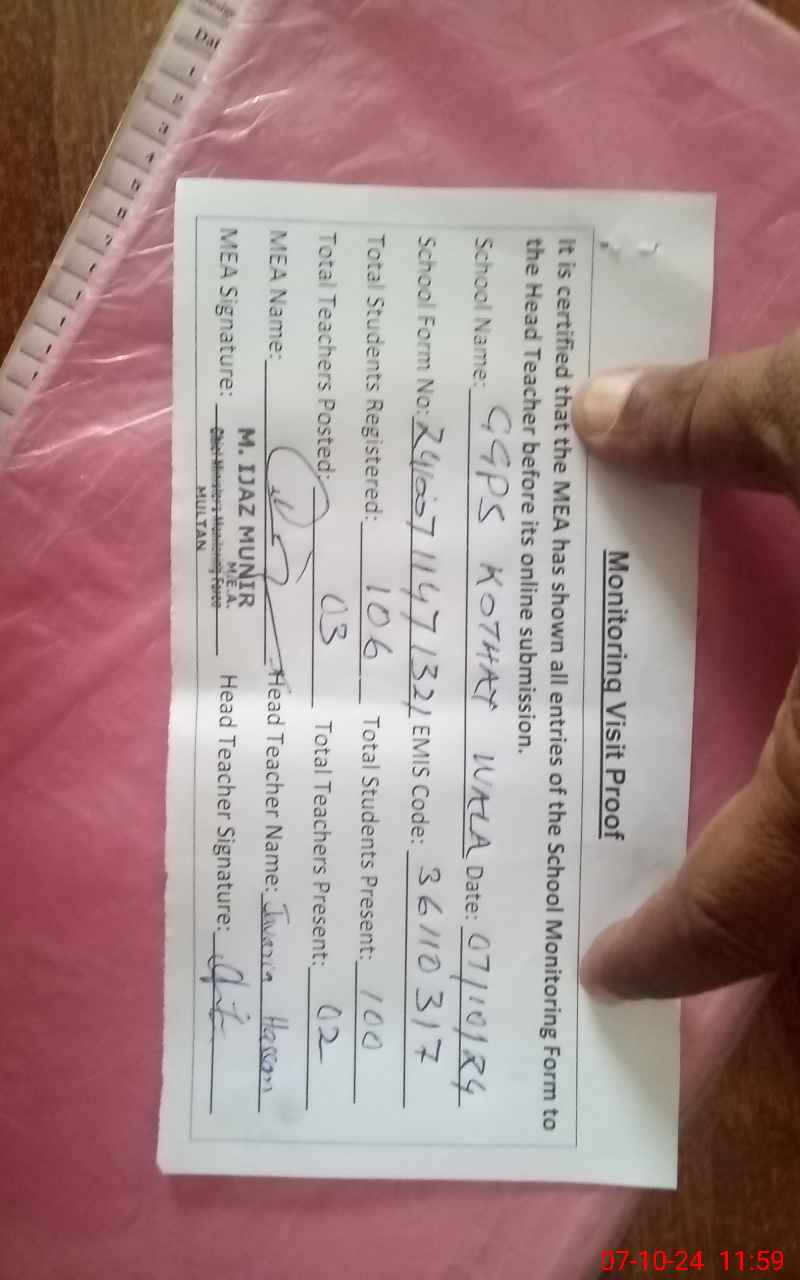 Monitoring Visit Proof
It is certified that the MEA has shown all entries of the School Monitoring Form to
the Head Teacher before its online submission.
School Name: GGPS KOTHAY WALA Date: 07/10/24
School Form No: EMIS Code: 36110317
Total Students Registered: 106 Total Students Present: 100
Total Teachers Posted: 03 Total Teachers Present: 02
MEA Name: Head Teacher Name: Javaria Hassan
MEA Signature: Head Teacher Signature:
M. IJAZ MUNIR
M.E.A.
Chief Ministers Monitoring Force
MULTAN
Dat
07-10-24 11:59